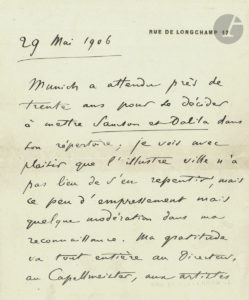 RUE DE LONGCHAMP 17
29 Mai 1906
Munich a attendu près de
trente ans pour se décider
à mettre Samson et Dalila dans
son répertoire ; je vois avec
plaisir que l'illustre ville n'a
pas lieu de s'en repentir, mais
ce peu d'empressement met
quelque modération dans ma
reconnaissance. Ma gratitude
va tout entière au Directeur,
au Capellmeister, aux artistes